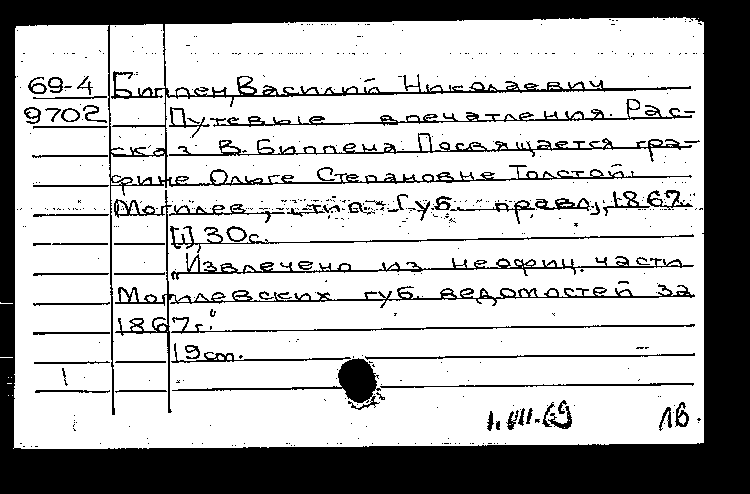 69-4 Биппен, Василий Николаевич
9702 Путевые впечатления. Рас-
сказ В. Биппена. Посвящается гра-
фине Ольге Степановне Толстой.
Могилев, тип. Губ. правл., 1867.
[1], 30с.
„Извлечено из неофиц. части
Могилевских губ. ведомостей за
1867г."
19cm.
1
1.VII.69 1В.